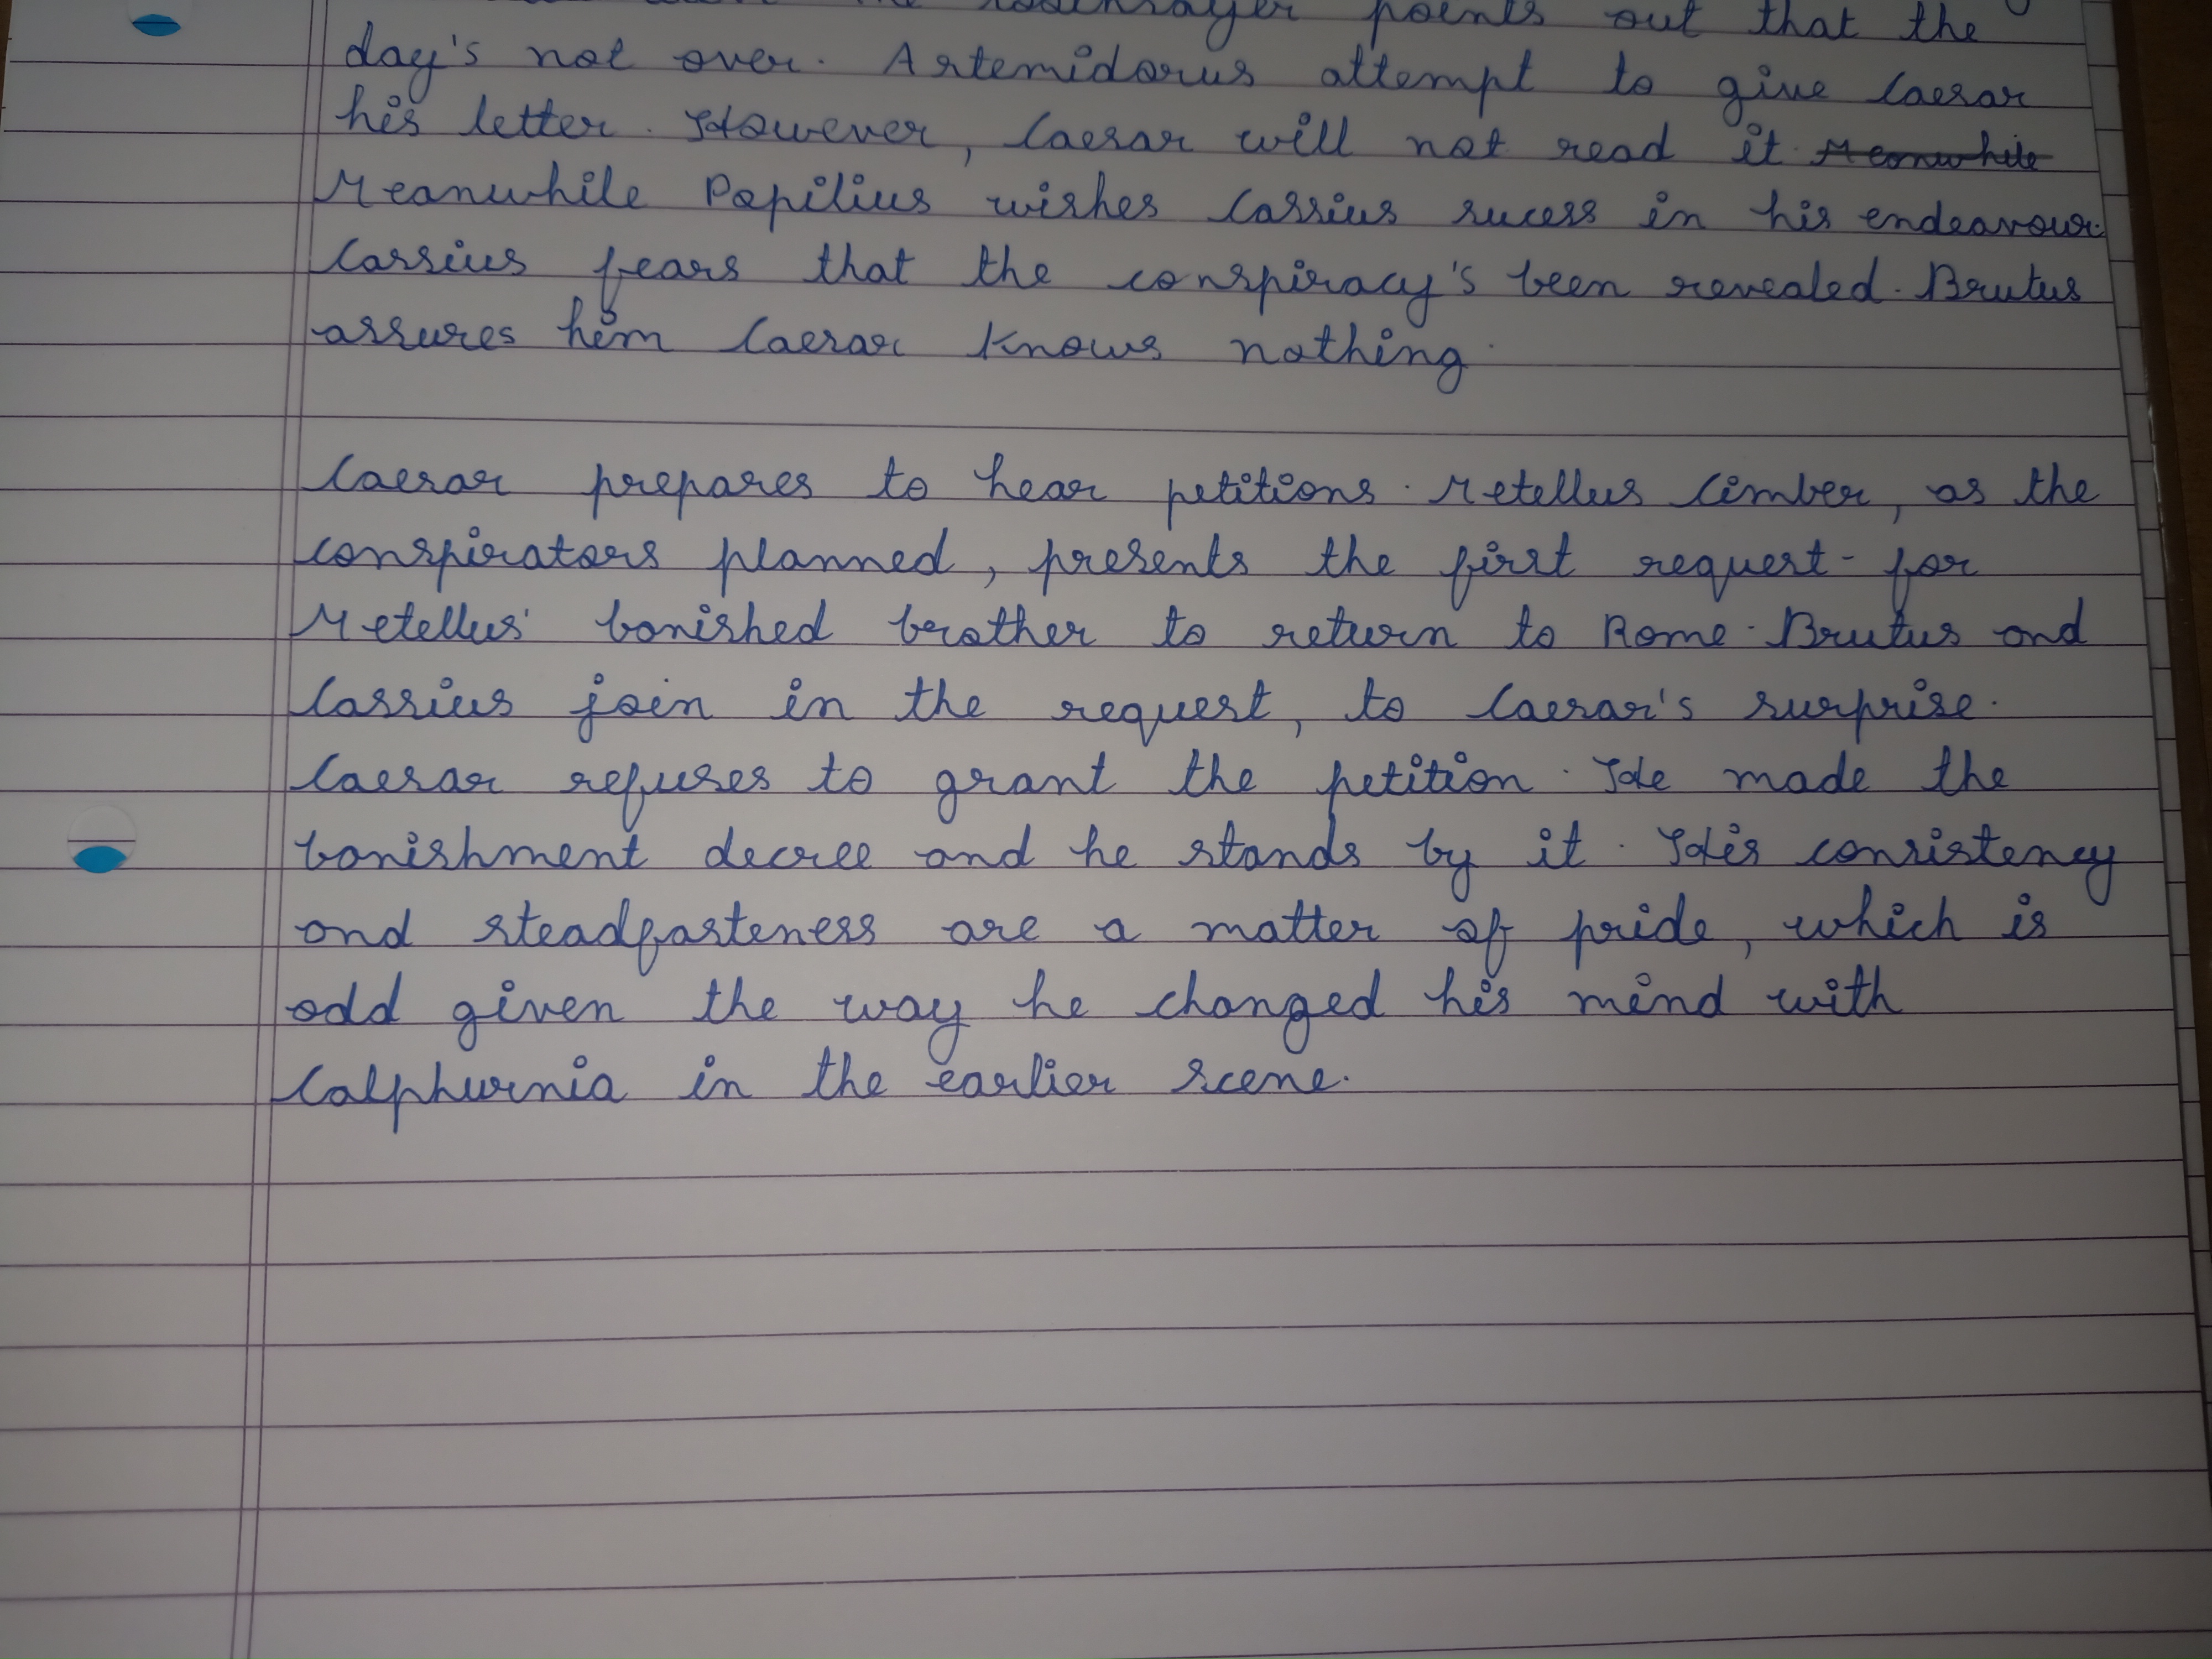 points out that the
day's not over. Artemidorus attempt to give Caesar
his letter. However, Caesar will not read it. Meanwhile
Meanwhile Popilius wishes Cassius sucess in his endeavour.
Cassius fears that the conspiracy's been revealed. Brutus
assures him Caesar knows nothing.
Caesar prepares to hear petitions. Metellus Cimber, as the
conspirators planned, presents the first request - for
Metellus' banished brother to return to Rome. Brutus and
Cassius join in the request, to Caesar's surprise.
Caesar refuses to grant the petition. He made the
banishment decree and he stands by it. His consistency
and steadfasteness are a matter of pride, which is
odd given the way he changed his mind with
Calphurnia in the earlier scene.